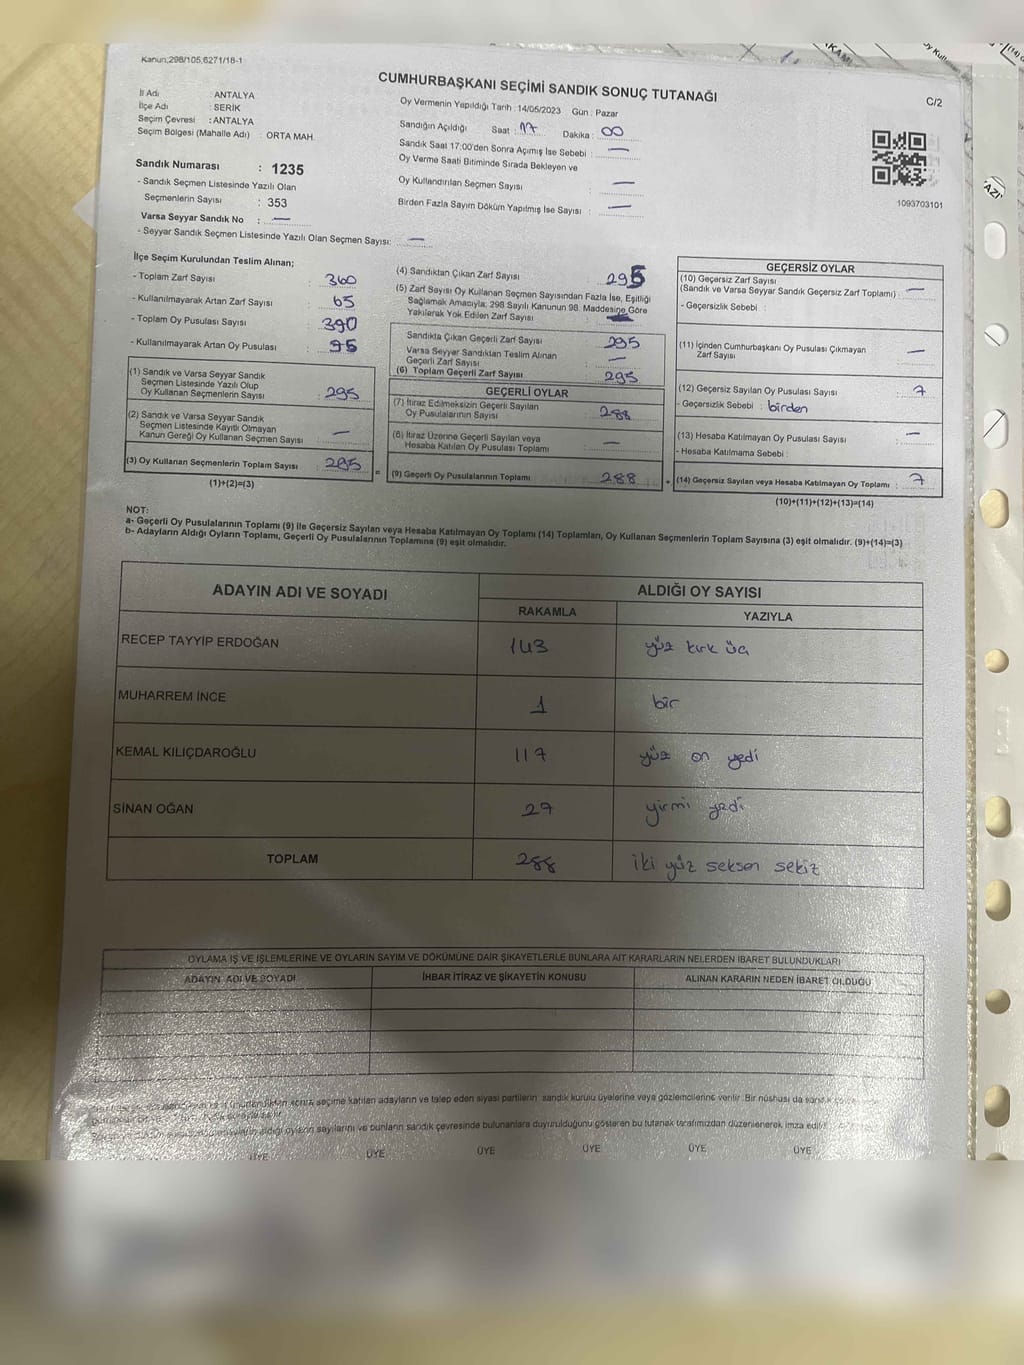 Kanun;298/105,6271/18-1
CUMHURBAŞKANI SEÇİMİ SANDIK SONUÇ TUTANAĞI
C/2
İl Adı : ANTALYA
İlçe Adı : SERİK
Seçim Çevresi : ANTALYA
Seçim Bölgesi (Mahalle Adı) : ORTA MAH.
Sandık Numarası : 1235
- Sandık Seçmen Listesinde Yazılı Olan
Seçmenlerin Sayısı : 353
Varsa Seyyar Sandık No : —
- Seyyar Sandık Seçmen Listesinde Yazılı Olan Seçmen Sayısı: —
Oy Vermenin Yapıldığı Tarih : 14/05/2023 Gün : Pazar
Sandığın Açıldığı Saat : 17 Dakika : 00
Sandık Saat 17:00'den Sonra Açımış İse Sebebi : —
Oy Verme Saati Bitiminde Sırada Bekleyen ve
Oy Kullandırılan Seçmen Sayısı : —
Birden Fazla Sayım Döküm Yapılmış İse Sayısı : —
1093703101
İlçe Seçim Kurulundan Teslim Alınan;
- Toplam Zarf Sayısı : 360
- Kullanılmayarak Artan Zarf Sayısı : 65
- Toplam Oy Pusulası Sayısı : 390
- Kullanılmayarak Artan Oy Pusulası : 95
(1) Sandık ve Varsa Seyyar Sandık
Seçmen Listesinde Yazılı Olup
Oy Kullanan Seçmenlerin Sayısı : 295
(2) Sandık ve Varsa Seyyar Sandık
Seçmen Listesinde Kayıtlı Olmayan
Kanun Gereği Oy Kullanan Seçmen Sayısı : —
(3) Oy Kullanan Seçmenlerin Toplam Sayısı : 295
(1)+(2)=(3)
(4) Sandıktan Çıkan Zarf Sayısı : 295
(5) Zarf Sayısı Oy Kullanan Seçmen Sayısından Fazla İse, Eşitliği
Sağlamak Amacıyla; 298 Sayılı Kanunun 98. Maddesine Göre
Yakılarak Yok Edilen Zarf Sayısı : —
Sandıkta Çıkan Geçerli Zarf Sayısı : 295
Varsa Seyyar Sandıktan Teslim Alınan
Geçerli Zarf Sayısı : —
(6) Toplam Geçerli Zarf Sayısı : 295
GEÇERLİ OYLAR
(7) İtiraz Edilmeksizin Geçerli Sayılan
Oy Pusulalarının Sayısı : 288
(8) İtiraz Üzerine Geçerli Sayılan veya
Hesaba Katılan Oy Pusulası Toplamı : —
(9) Geçerli Oy Pusulalarının Toplamı : 288
GEÇERSİZ OYLAR
(10) Geçersiz Zarf Sayısı
(Sandık ve Varsa Seyyar Sandık Geçersiz Zarf Toplamı) : —
- Geçersizlik Sebebi :
(11) İçinden Cumhurbaşkanı Oy Pusulası Çıkmayan
Zarf Sayısı : —
(12) Geçersiz Sayılan Oy Pusulası Sayısı : 7
- Geçersizlik Sebebi : birden
(13) Hesaba Katılmayan Oy Pusulası Sayısı : —
- Hesaba Katılmama Sebebi :
(14) Geçersiz Sayılan veya Hesaba Katılmayan Oy Toplamı : 7
(10)+(11)+(12)+(13)=(14)
NOT:
a- Geçerli Oy Pusulalarının Toplamı (9) ile Geçersiz Sayılan veya Hesaba Katılmayan Oy Toplamı (14) Toplamları, Oy Kullanan Seçmenlerin Toplam Sayısına (3) eşit olmalıdır. (9)+(14)=(3)
b- Adayların Aldığı Oyların Toplamı, Geçerli Oy Pusulalarının Toplamına (9) eşit olmalıdır.
ADAYIN ADI VE SOYADI
ALDIĞI OY SAYISI
RAKAMLA YAZIYLA
RECEP TAYYIP ERDOĞAN 143 yüz kırk üç
MUHARREM İNCE 1 bir
KEMAL KILIÇDAROĞLU 117 yüz on yedi
SİNAN OĞAN 27 yirmi yedi
TOPLAM 288 iki yüz seksen sekiz
OYLAMA İŞ VE İŞLEMLERİNE VE OYLARIN SAYIM VE DÖKÜMÜNE DAİR ŞİKAYETLERLE BUNLARA AİT KARARLARIN NELERDEN İBARET BULUNDUKLARI
ADAYIN ADI VE SOYADI İHBAR İTİRAZ VE ŞİKAYETİN KONUSU ALINAN KARARIN NEDEN İBARET OLDUĞU
sonra seçime katılan adayların ve talep eden siyasi partilerin sandık kurulu üyelerine veya gözlemcilerine verilir. Bir nüshası da
aldığı oyların sayılarını ve bunların sandık çevresinde bulunanlara duyurulduğunu gösteren bu tutanak tarafımızdan düzenlenerek imza
ÜYE ÜYE ÜYE ÜYE ÜYE ÜYE